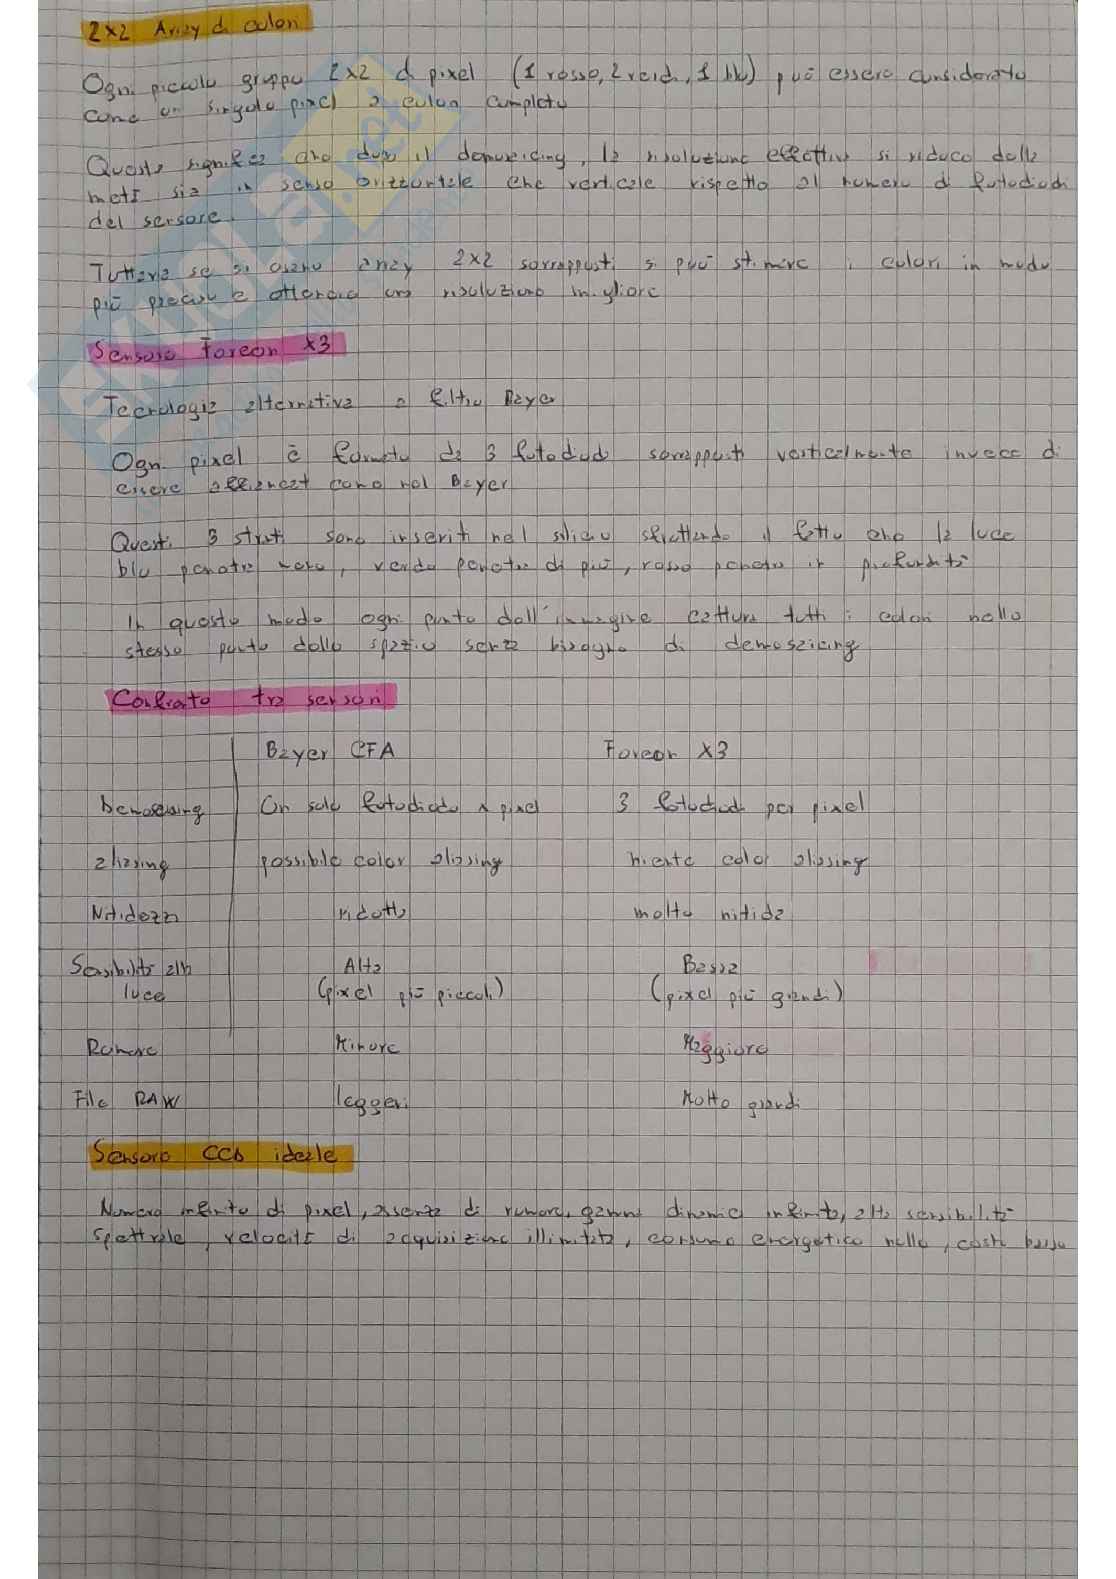 2x2 Array di colori
Ogni piccolo gruppo 2x2 di pixel (1 rosso, 2 verdi, 1 blu) può essere considerato
come un singolo pixel a colori completo
Questo significa che dopo il demosaicing, la risoluzione effettiva si riduce della
metà sia in senso orizzontale che verticale rispetto al numero di fotodiodi
del sensore.
Tuttavia se si usano array 2x2 sovrapposti si può stimare i colori in modo
più preciso e ottenere una risoluzione migliore
Sensore Foveon X3
Tecnologia alternativa a filtro Bayer
Ogni pixel è formato da 3 fotodiodi sovrapposti verticalmente invece di
essere affiancati come nel Bayer
Questi 3 strati sono inseriti nel silicio sfruttando il fatto che la luce
blu penetra meno, verde penetra di più, rosso penetra in profondità
In questo modo ogni punto dell'immagine cattura tutti i colori nello
stesso punto dello spazio senza bisogno di demosaicing
Confronto tra sensori
Bayer CFA Foveon X3
Demosaicing Un solo fotodiodo x pixel 3 fotodiodi per pixel
aliasing possibile color aliasing niente color aliasing
Nitidezza ridotta molto nitida
Sensibilità alla Alta Bassa
luce (pixel più piccoli) (pixel più grandi)
Rumore Minore Maggiore
File RAW leggeri Molto grandi
Sensore CCD ideale
Numero infinito di pixel, assenza di rumore, gamma dinamica infinita, alta sensibilità
spettrale, velocità di acquisizione illimitata, consumo energetico nullo, costi bassi
SKUOLA.net